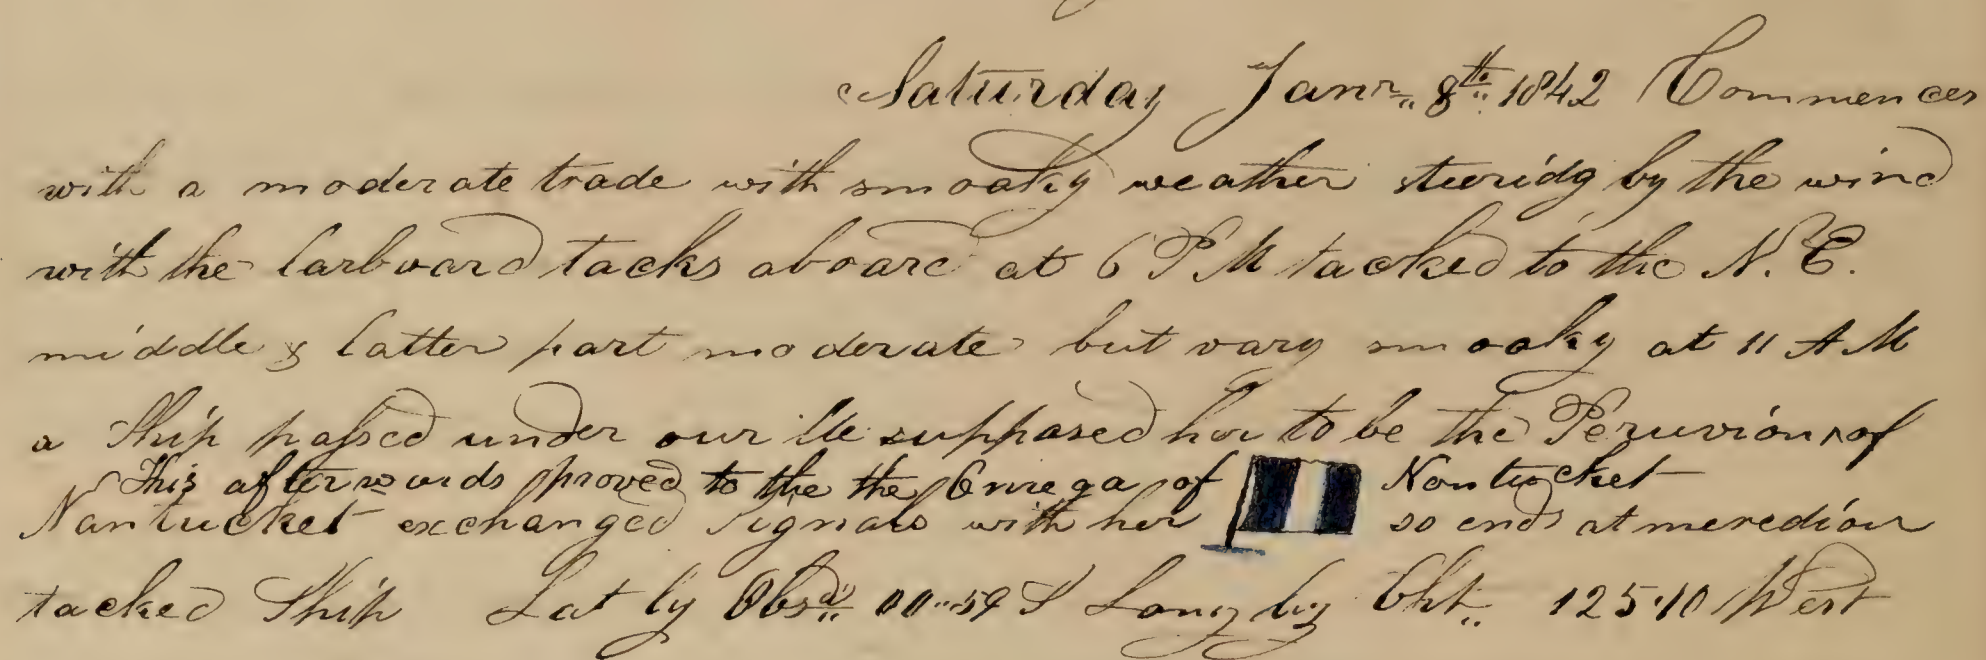 Saturday Janr 8th 1842 Commences
with a moderate trade with smoaky weather steeridg by the wind
with the larboard tacks aboard at 6 P M tacked to the N. E.
middle & latter part moderate but vary smoaky at 11 A M
a Ship passed under our lle supposed her to be the Peruvian of
This afterwards proved to the the Omega of Nantucket
Nantucket exchanged Signals with her so ends at meredian
tacked Ship Lat by Obsd 00..59 S Long by Cht 125.10 West